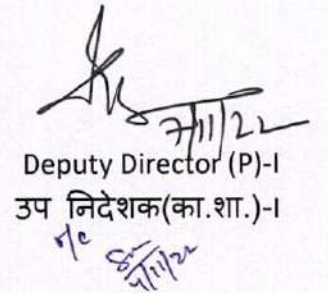 7/11/22
Deputy Director (P)-I
उप निदेशक(का.शा.)-I
o/c
7/11/22